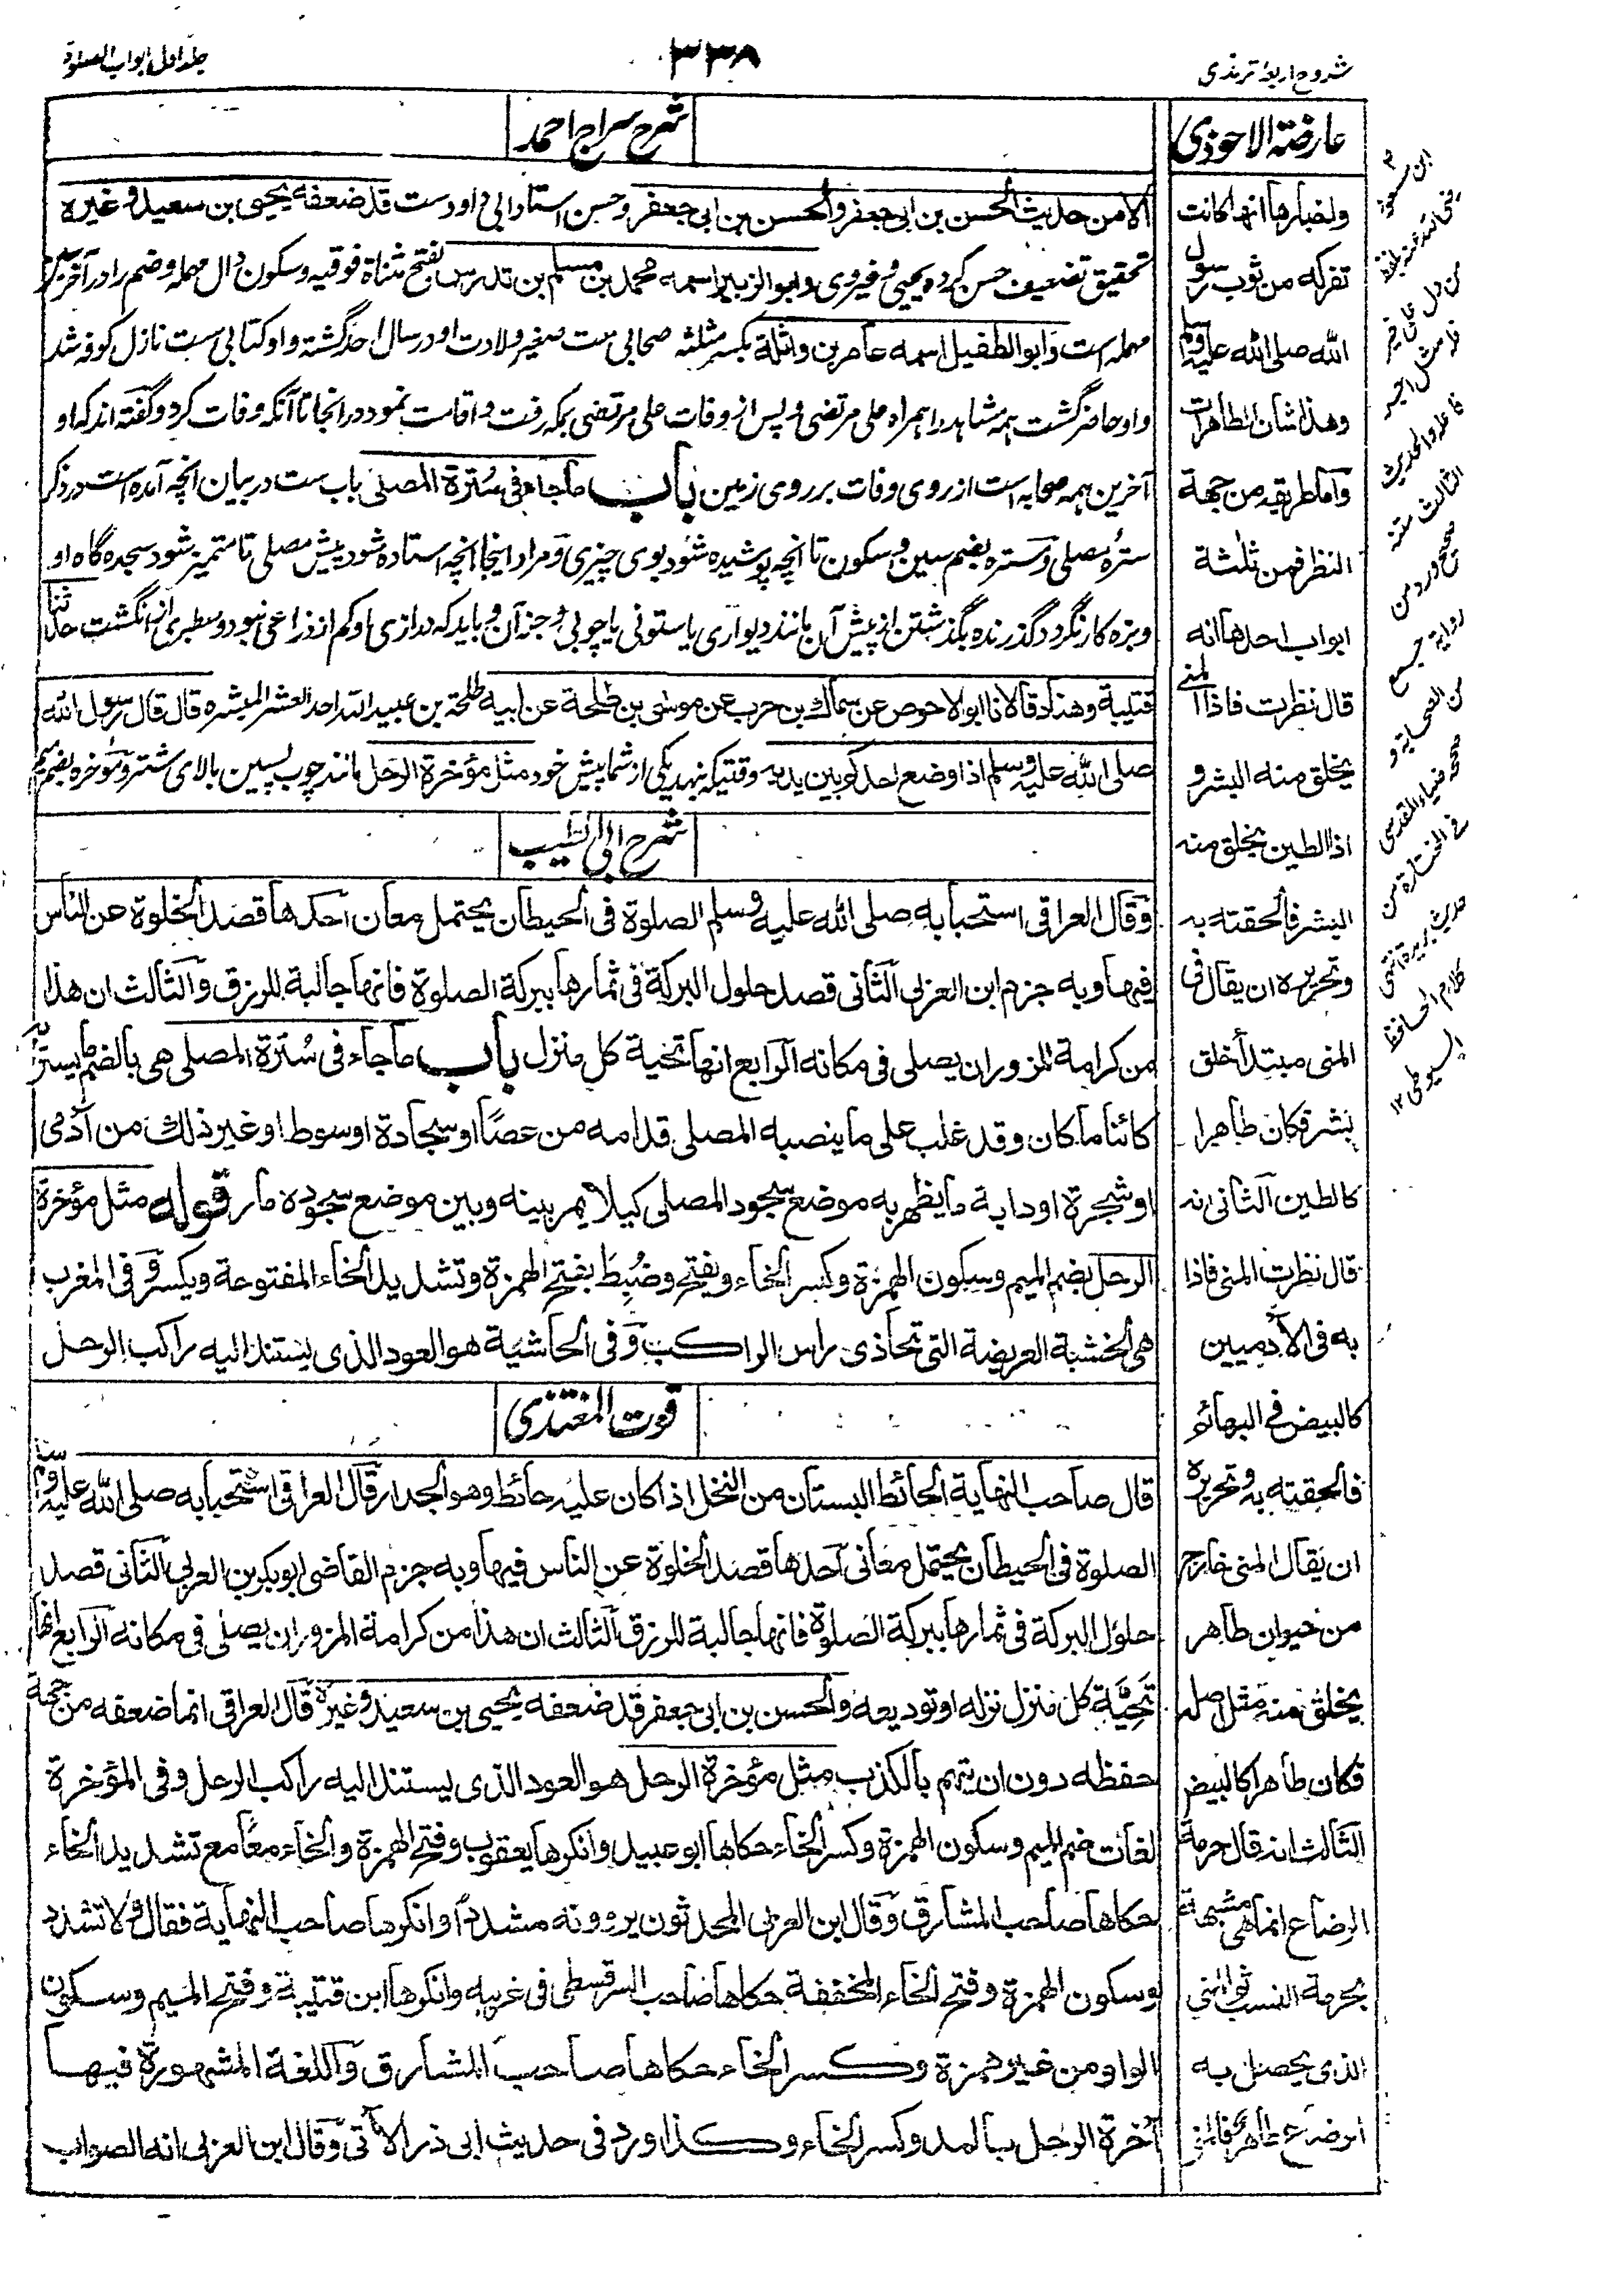 شروح اربعۀ ترمذی
۳۳۸
جلد اول ابواب الصلوة
عارضة الاحوذی
واخبارها انها كانت
تفركه من ثوب رسول
الله صلى الله عليه وسلم
وهذا شان الطاهرات
وأما طريقه من جهة
النظر فمن ثلثة
ابواب احدها انه
قال نظرت فاذا المنى
يخلق منه البشر و
اذا الطين يخلق منه
البشر فألحقته به
وتحريره ان يقال فى
المنى مبتدأ خلق
بشر فكان طاهرا
كالطين الثانى انه
قال نظرت المنى فاذا
به فى الآدميين
كالبيض فى البهائم
فألحقته به وتحريره
ان يقال المنى خارج
من حيوان طاهر
يخلق منه مثل اصله
فكان طاهرا كالبيض
الثالث انه قال حرمة
الرضاع انما هى مشبهة
بحرمة النسب
الذى يحصل به
شرح سراج احمد
الا من حديث الحسن بن ابى جعفر والحسن بن ابى جعفر و حسن استاد ابی داودست قد ضعفه يحيى بن سعيد وغيره
تحقیق تضعیف حسن کرده یحیی و غیر وی وابو الزبير اسمه محمد بن مسلم بن تدرس بفتح مثناة فوقیه و سکون دال مهمله وضم را در آخر سین
مهمله است وابو الطفيل اسمه عامر بن واثلة بکسر مثلثه صحابی ست صغیر ولادت او در سال احد گشته و او کتابی ست نازل کوفه شد
و او حاضر گشت همه مشاهد را همراه علی مرتضی و پس از وفات علی مرتضی بمکه رفت و اقامت نمود در انجا تا آنکه وفات کرد و گفته اند که او
آخرین همه صحابه است از روی وفات بر روی زمین باب ما جاء فى سترة المصلى باب ست در بیان انچه آمده است در ذکر
سترهٔ مصلی و ستره بضم سین و سکون تا انچه پوشیده شود بوی چیزی و مراد اینجا انچه استاده شود پیش مصلی تا متمیز شود سجده گاه او
و بزه کار نگردد گذرنده بگذشتن از پیش آن مانند دیواری یا ستونی یا چوبی و جز آن و باید که درازی او کم از ذراعی نبود و سطبری از انگشت حدثنا
قتيبة وهناد قالا نا ابو الاحوص عن سماك بن حرب عن موسى بن طلحة عن ابيه طلحة بن عبيد الله احد العشر المبشره قال قال رسول الله
صلى الله عليه وسلم اذا وضع احدكم بين يديه وقتیکه بنهد یکی از شما پیش خود مثل مؤخرة الرحل مانند چوب پسین بالای شتر و مؤخره بضم میم
شرح ابی الطیب
وقال العراقى استحبابه صلى الله عليه وسلم الصلوة فى الحيطان يحتمل معان احدها قصد الخلوة عن الناس
فيها وبه جزم ابن العربى الثانى قصد حلول البركة فى ثمارها ببركة الصلوة فانها جالبة للرزق والثالث ان هذا
من كرامة المزور ان يصلى فى مكانه الرابع انها تحية كل منزل باب ما جاء فى سترة المصلى هى بالضم ما يستتر به
كائنا ما كان وقد غلب على ما ينصبه المصلى قدامه من عصا او سجادة او سوط او غير ذلك من آدمى
او شجرة او دابة ما يظهر به موضع سجود المصلى كيلا يمر بينه وبين موضع سجوده مار قوله مثل مؤخرة
الرحل بضم الميم وسكون الهمزة وكسر الخاء ويفتح وضبط بفتح الهمزة وتشديد الخاء المفتوحة ويكسر وفى المغرب
هى الخشبة العريضة التى تحاذى راس الراكب وفى الحاشية هو العود الذى يستند اليه راكب الرحل
قوت المغتذی
قال صاحب النهاية الحائط البستان من النخل اذا كان عليه حائط وهو الجدار قال العراقى استحبابه صلى الله عليه وسلم
الصلوة فى الحيطان يحتمل معانى احدها قصد الخلوة عن الناس فيها وبه جزم القاضى ابو بكر بن العربى الثانى قصد
حلول البركة فى ثمارها ببركة الصلوة فانها جالبة للرزق الثالث ان هذا من كرامة المزور ان يصلى فى مكانه الرابع انها
تحية كل منزل نزله او توديعه والحسن بن ابى جعفر قد ضعفه يحيى بن سعيد وغيره قال العراقى انما ضعفه من جهة
حفظه دون ان يتهم بالكذب مثل مؤخرة الرحل هو العود الذى يستند اليه راكب الرحل وفى المؤخرة
لغات ضم الميم وسكون الهمزة وكسر الخاء حكاها ابو عبيد وانكرها يعقوب وفتح الهمزة والخاء معا مع تشديد الخاء
حكاها صاحب المشارق وقال ابن العربى المحدثون يروونه مشددا وانكرها صاحب النهاية فقال ولا تشدد
وسكون الهمزة وفتح الخاء المخففة حكاها صاحب السرقسطى فى غريبه وانكرها ابن قتيبة وفتح الميم وسكون
الواو من غير همزة وكسر الخاء حكاها صاحب المشارق واللغة المشهورة فيها
آخرة الرحل بالمد وكسر الخاء وكذا ورد فى حديث ابى ذر الآتى وقال ابن العربى انه الصواب
فا علم والحديث
الثالث متنه
صحيح ورد من
رواية جمع
من الصحابة و
صححه ضياء المقدسى
فى المختارة من
حديث بريدة انتهى
كلام الحافظ
السيوطى ١٢